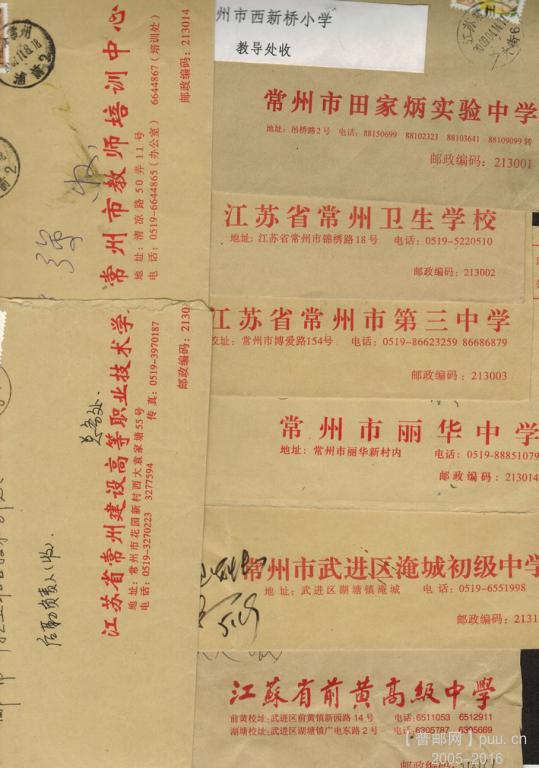 常州市教师培训中心
地址:清凉路50弄11号
电话:0519-6644865(办公室) 6644867(培训处)
邮政编码:213014
州市西新桥小学
教导处收
常州市田家炳实验中学
地址:吊桥路2号 电话:88150699 88102323 88103641 88109099转
邮政编码:213001
江苏省常州卫生学校
地址:江苏省常州市锦绣路18号 电话:0519-5220510
邮政编码:213002
江苏省常州市第三中学
校址:常州市博爱路154号 电话:0519-86623259 86686879
邮政编码:213003
常州市丽华中学
地址:常州市丽华新村内 电话:0519-8851079
邮政编码:213014
常州市武进区淹城初级中学
地址:武进区湖塘镇淹城 电话:0519-6551998
邮政编码:2131
江蘇省前黄高級中學
前黄校址:武进区前黄镇新园路14号 电话:6511053 6512911
湖塘校址:武进区湖塘镇广电东路2号 电话:6305787 6305669
邮政编码:
江苏省常州建设高等职业技术学
地址:常州市花园新村西大袁家塘55号
电话:0519-3270223 3277594 传真:0519-3970187
邮政编码:2130
后勤负责人(收)
【普邮网】puu.cn
2005-2016